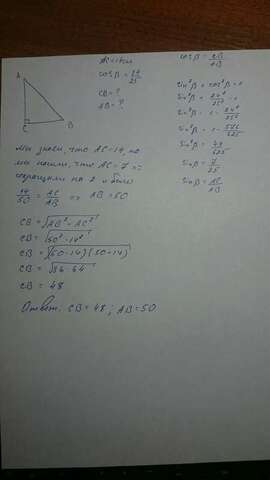 A
C
B
AC = 14 см
cos β = 24/25
CB = ?
AB = ?
cos β = CB/AB
sin²β + cos²β = 1
sin²β + 24²/25² = 1
sin²β = 1 - 24²/25²
sin²β = 1 - 576/625
sin²β = 49/625
sin β = 7/25
sin β = AC/AB
Мы знаем, что AC = 14, но
мы нашли, что AC = 7 =>
сократили на 2 и было
14/50 = AC/AB => AB = 50
CB = √AB² - AC²
CB = √50² - 14²
CB = √(50-14)(50+14)
CB = √36·64
CB = 48
Ответ: CB = 48; AB = 50